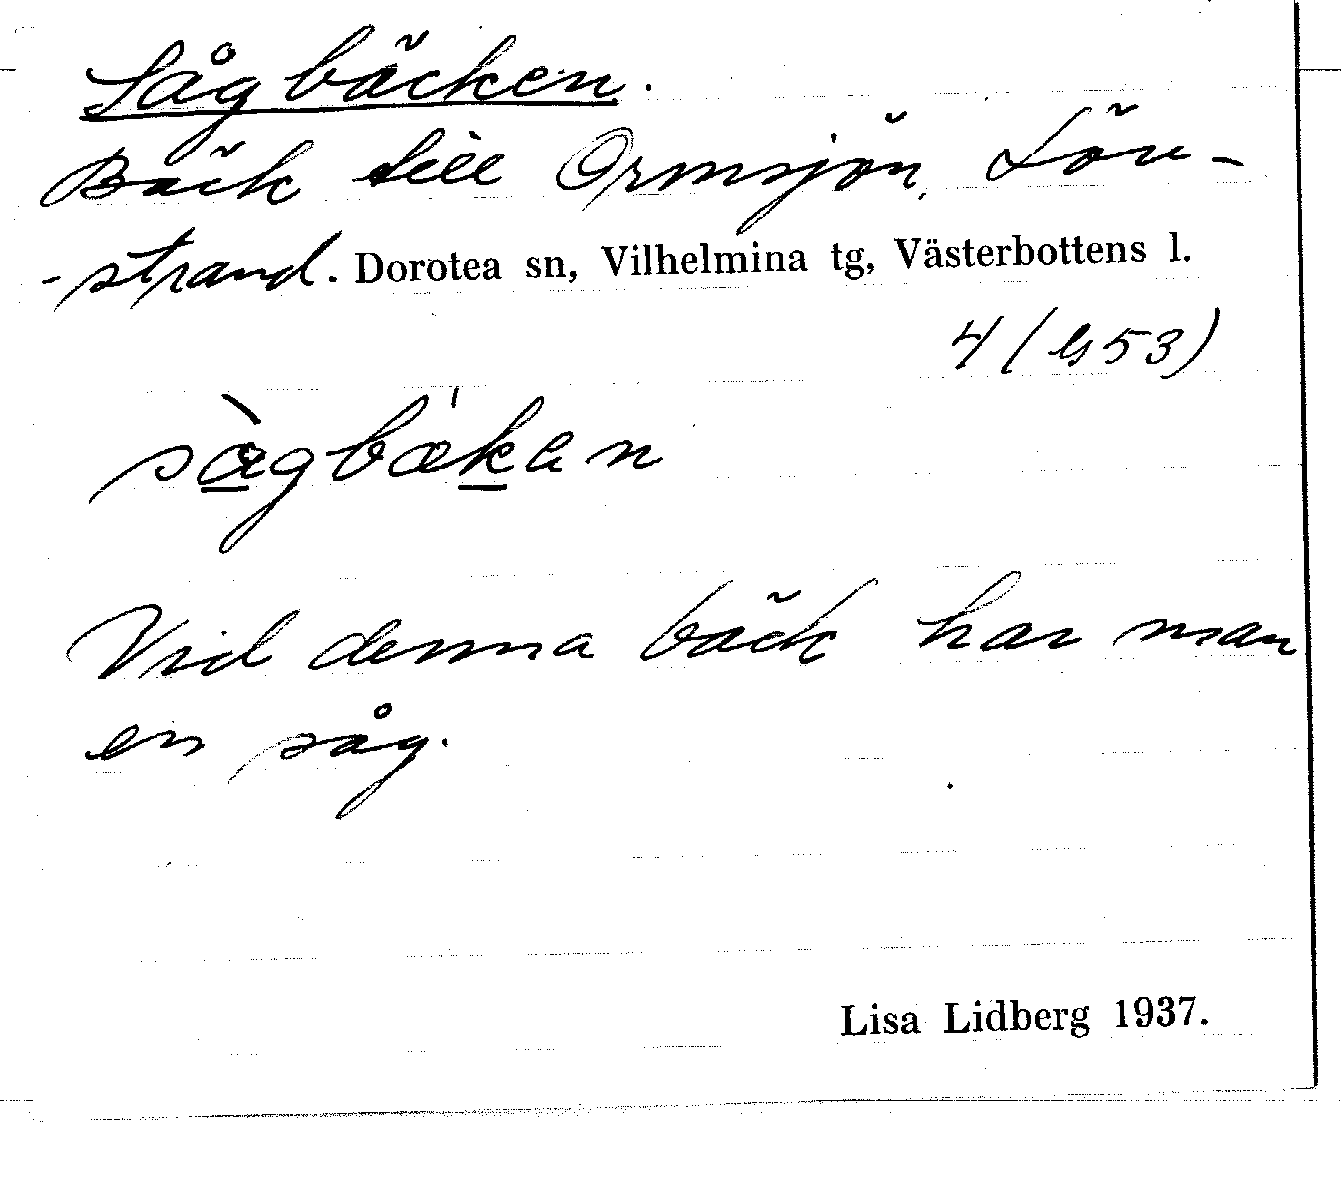 Sågbäcken.
Bäck till Ormsjön, Löv-
-strand. Dorotea sn, Vilhelmina tg, Västerbottens l.
4 (b 53)
sàgbækan
Vid denna bäck har man
en såg.
Lisa Lidberg 1937.